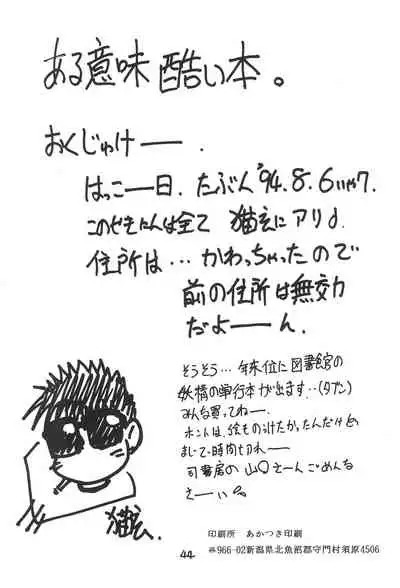 ある意味 酷い本。
おくじゅけー.
はっこー日. たぶん'94.8.6いや7.
このせきにんは全て 猫玄にアリ♪
住所は… かわっちゃったので
前の住所は無効
だよーん.
そうそう… 年末位に図書館の
妖精の単行本が出ます…(タブン)
みんな買ってねー.
ホントは、絵もつけたかったんだけど
まじで時間切れー
司書房の 山〇さーん ごめんな
さーい
猫玄.
印刷所 あかつき印刷
〒966-02新潟県北魚沼郡守門村須原4506
44